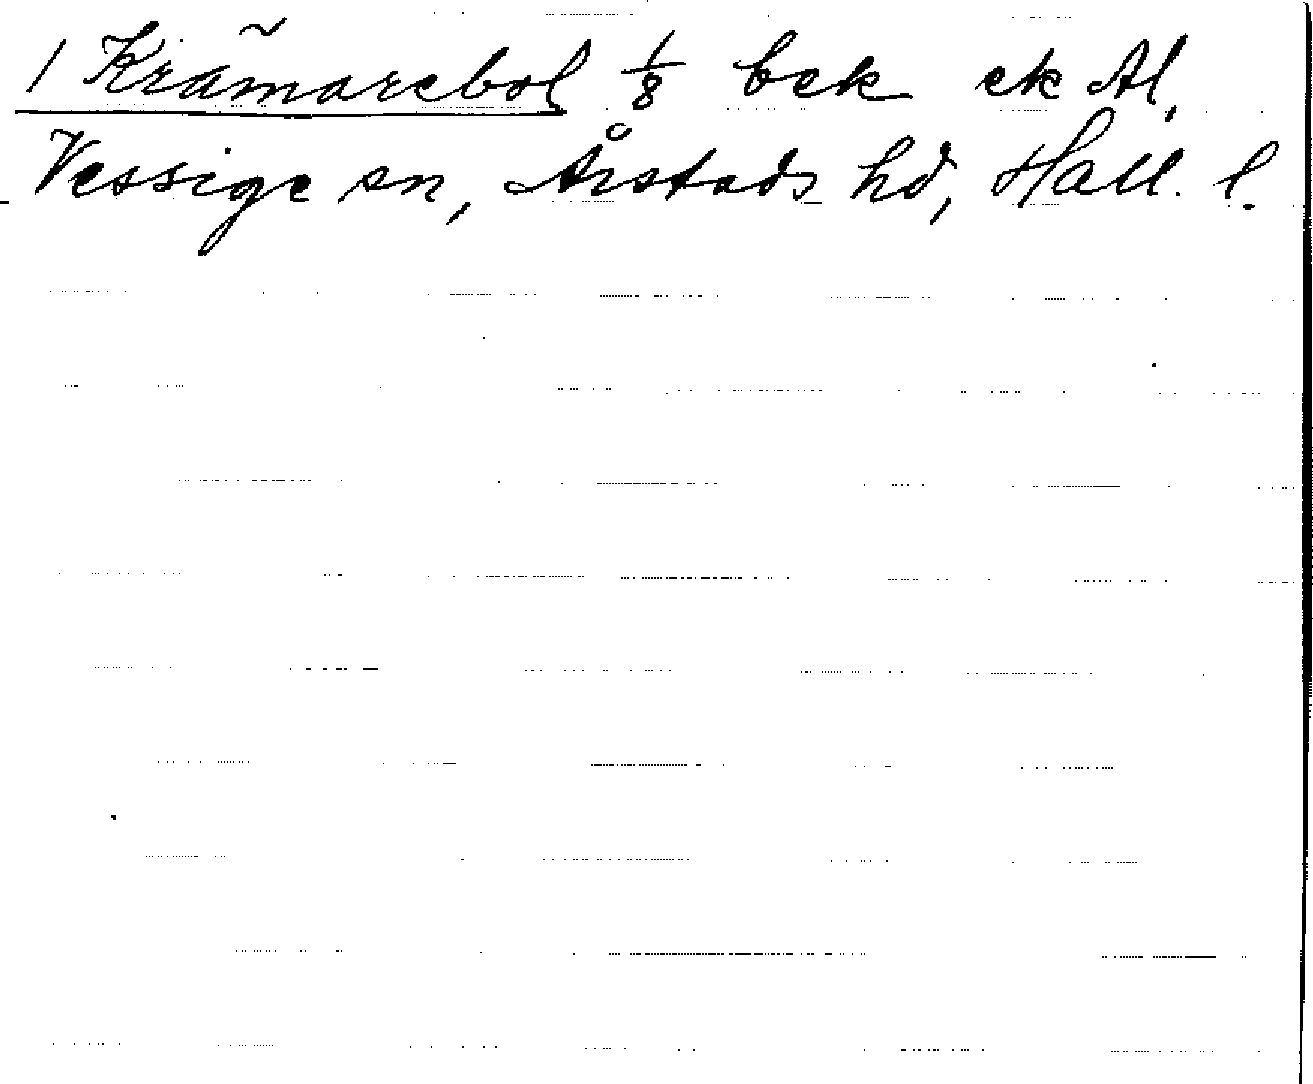 1 Krämarebol 1/8 bek ek Al,
Vessige sn, Årstads hd, Hall. l.